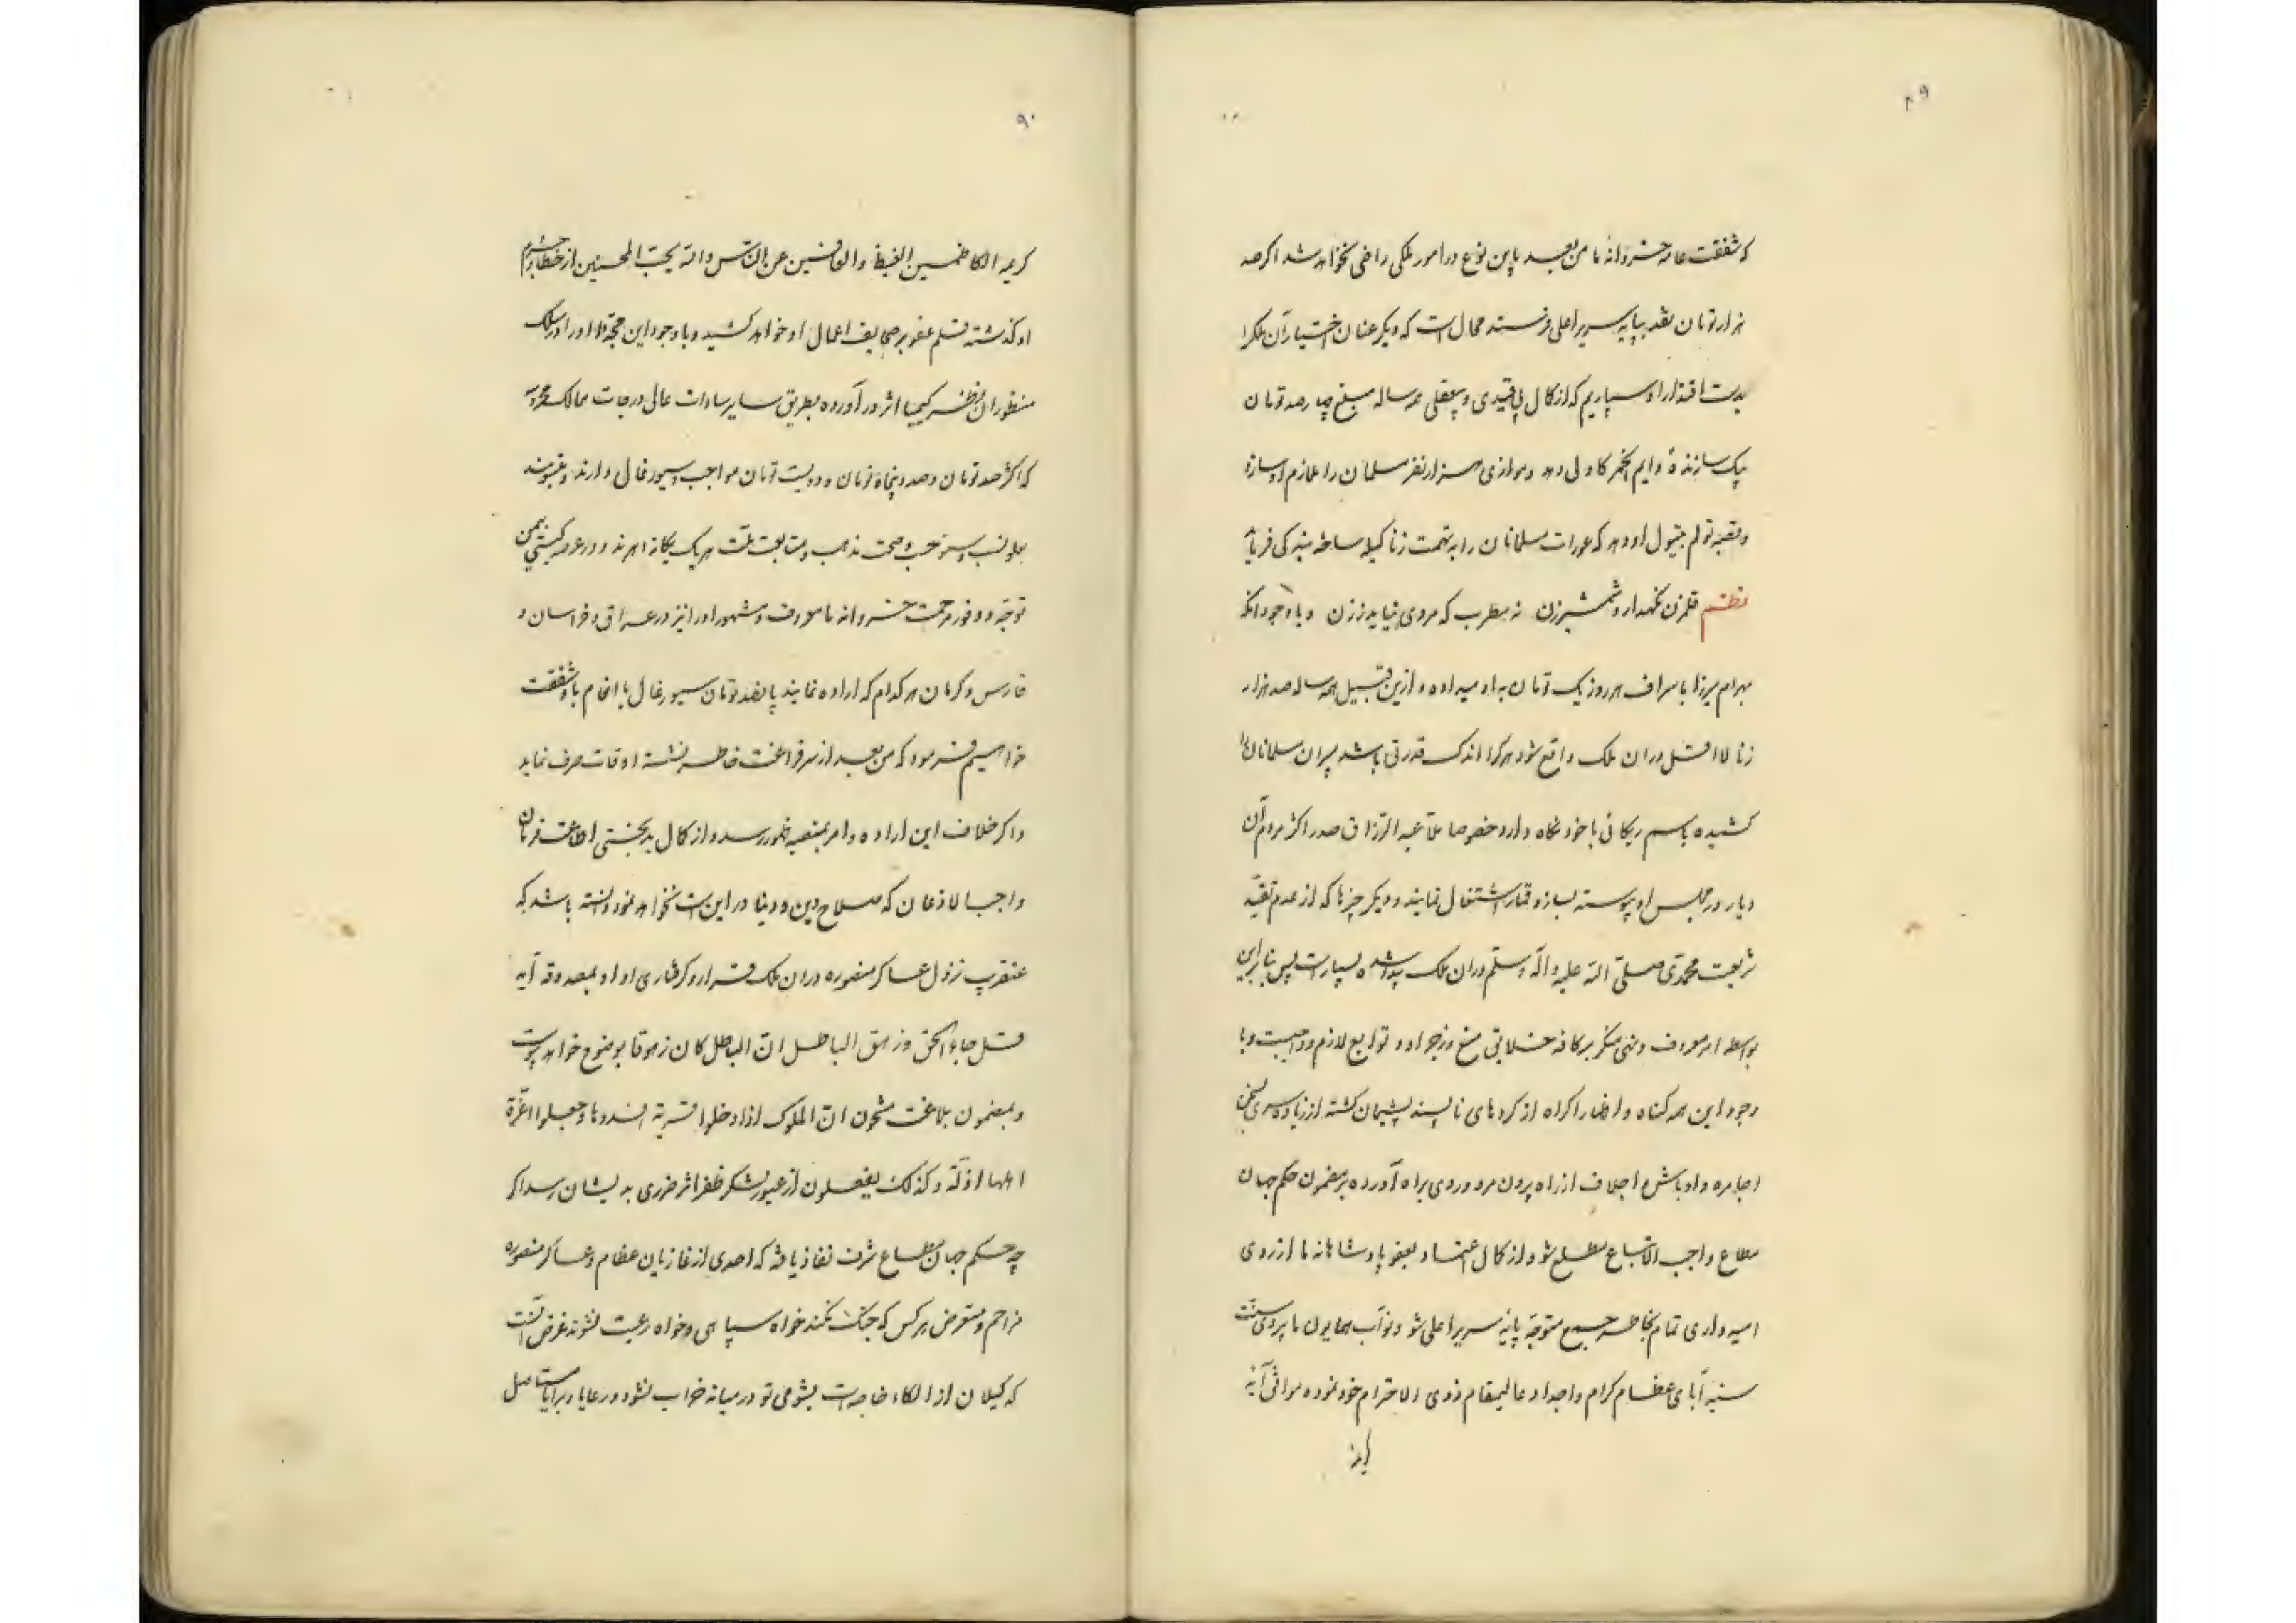 ۸۹
که شفقت عامه خسروانه ما من بعد باین نوع در امور ملکی راضی نخواهد شد اگر صد
هزار تومان نقد بپایه سریر اعلی فرستد محال است که دیگر عنان اختیار آن ملک را
بدست اقتدار او سپاریم که از کمال بی قیدی و بیعقلی همه ساله مبلغ چهارصد تومان
بیک سازنده دایم الخمر کاولی دهد و موازی هزار نفر مسلمان را ملازم او سازد
و قصبه تولم بتیول او دهد که عورات مسلمانان را به تهمت زنا کیله
نظم قلمزن نگهدار و شمشیرزن نه مطرب که مردی نیاید ز زن و با وجود آنکه
بهرام میرزا باسراف هر روز یک تومان به او میداده و ازین قبیل همه ساله صد هزار
زنا لااقل در آن ملک واقع شود هر کرا اندک قدرتی باشد پسران مسلمانان را
کشیده باسم ریکائی با خود نگاه دارد خصوصا ملا عبدالرزاق صدر اکثر مردم آن
دیار در مجلس او پیوسته بساز و قمار اشتغال نمایند و دیگر چیزها که از عدم تقید
شریعت محمدی صلی الله علیه و آله و سلم در آن ملک پیدا شده بسیار است پس بنا بر این
بواسطه امر معروف و نهی منکر بر کافه خلایق منع و زجر او و توابع لازم و واجبست و با
وجود این همه گناه و اضرار اگر او از کردهای ناپسند پشیمان گشته از زیاده سری
اجامره و اوباش و اجلاف از راه بیرون مرو و روی براه آورده بر مضمون حکم جهان
مطاع واجب الاتباع مطلع شود و از کمال اعتماد بعفو پادشاهانه ما از روی
امیدواری تمام بخاطر جمع متوجه پایه سریر اعلی شود نواب همایون ما پیروی سنت
سنیه آبای عظام کرام و اجداد عالیمقام ذوی الاحترام خود نموده موافق آیه
کریمه
۹۰
کریمه الکاظمین الغیظ والعافین عن الناس والله یحب المحسنین از خطا و جرم
او گذشته قلم عفو بر صحایف اعمال او خواهد کشید و با وجود این او را در سلک
منظوران نظر کیمیا اثر در آورده بطریق سایر سادات عالی درجات ممالک محروسه
که اکثر صد تومان و صد و پنجاه تومان و دویست تومان مواجب و سیورغال دارند و
بعلو نسب و سمو حسب و صحت مذهب و متابعت ملت هر یک یگانه دهرند و در عرصه گیتی بیمن
توجه و وفور مرحمت خسروانه ما معروف و مشهور او را نیز در عراق و خراسان و
فارس و کرمان هر کدام که اراده نمایند پانصد تومان سیورغال با انعام باو شفقت
خواهیم فرمود که من بعد از سر فراغت خاطر نشسته اوقات صرف نماید
و اگر خلاف این اراده و امر بمنصه ظهور رسد و از کمال بدبختی اطاعت فرمان
واجب الاذعان که صلاح دین و دنیا در این است نخواهد نمود دانسته باشد که
عنقریب نزول عساکر منصوره در آن ملک قرار و گرفتاری او بمصدوقه آیه
قل جاء الحق و زهق الباطل ان الباطل کان زهوقا بوضوح خواهد پیوست
و بمضمون بلاغت مشحون ان الملوک اذا دخلوا قریة افسدوها و جعلوا اعزة
اهلها اذلة و کذلک یفعلون از عبور لشکر ظفر اثر ضرری بدیشان رسد اگر
چه حکم جهان مطاع شرف نفاذ یافته که احدی از غازیان عظام و عساکر منصوره
مزاحم و متعرض هر کس که جنگ نکند خواه سپاهی و خواه رعیت نشوند غرض آنست
که گیلان از الکاء خاصه است بشومی تو در میانه خراب نشود و رعایا و برایا مستاصل